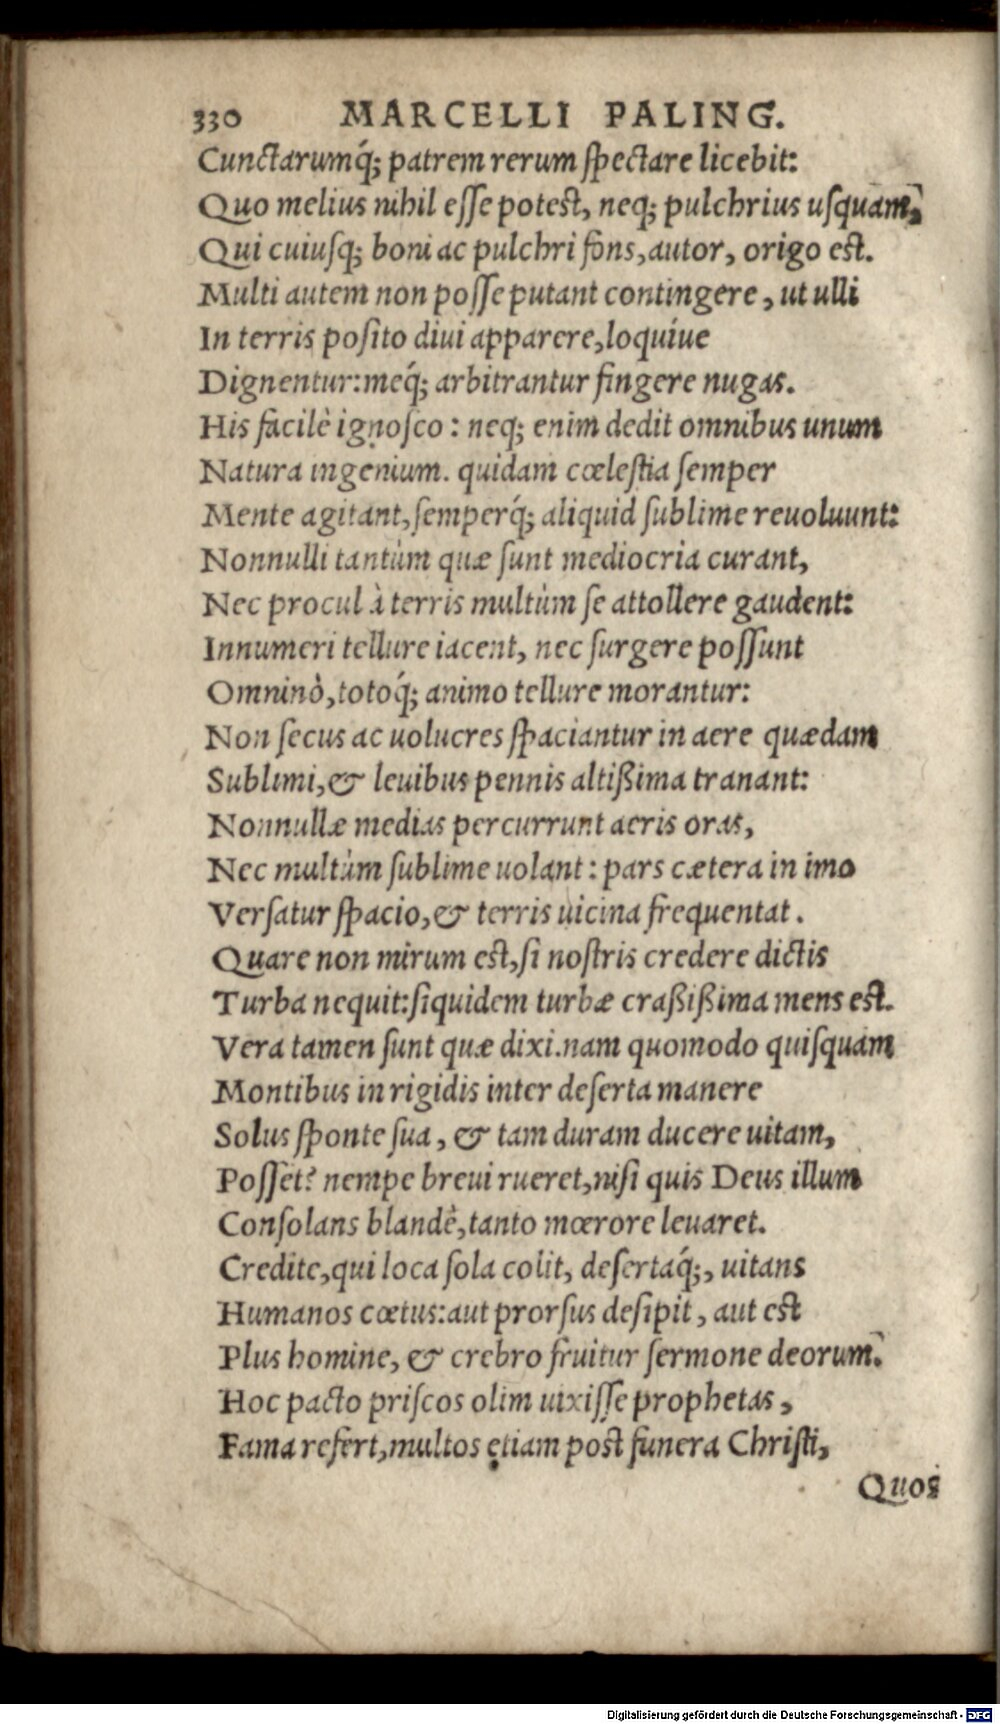 330 MARCELLI PALING.
Cunctarumq́; patrem rerum ſpectare licebit:
Quo melius nihil eſſe poteſt, neq; pulchrius uſquam,
Qui cuiuſq; boni ac pulchri fons, autor, origo eſt.
Multi autem non poſſe putant contingere, ut ulli
In terris poſito diui apparere, loquiue
Dignentur: meq́; arbitrantur fingere nugas.
His facilè ignoſco: neq; enim dedit omnibus unum
Natura ingenium. quidam cœleſtia ſemper
Mente agitant, ſemperq́; aliquid ſublime reuoluunt:
Nonnulli tantùm quæ ſunt mediocria curant,
Nec procul à terris multùm ſe attollere gaudent:
Innumeri tellure iacent, nec ſurgere poſſunt
Omninò, totoq́; animo tellure morantur:
Non ſecus ac uolucres ſpaciantur in aere quædam
Sublimi, & leuibus pennis altißima tranant:
Nonnullæ medias percurrunt aeris oras,
Nec multùm ſublime uolant: pars cætera in imo
Verſatur ſpacio, & terris uicina frequentat.
Quare non mirum eſt, ſi noſtris credere dictis
Turba nequit: ſiquidem turbæ craßißima mens eſt.
Vera tamen ſunt quæ dixi. nam quomodo quiſquam
Montibus in rigidis inter deſerta manere
Solus ſponte ſua, & tam duram ducere uitam,
Poſſet? nempe breui rueret, niſi quis Deus illum
Conſolans blandè, tanto mœrore leuaret.
Credite, qui loca ſola colit, deſertaq́;, uitans
Humanos cœtus: aut prorſus deſipit, aut eſt
Plus homine, & crebro fruitur ſermone deorum.
Hoc pacto priſcos olim uixiſſe prophetas,
Fama refert, multos etiam poſt funera Chriſti,
Quos
Digitalisierung gefördert durch die Deutsche Forschungsgemeinschaft - DFG